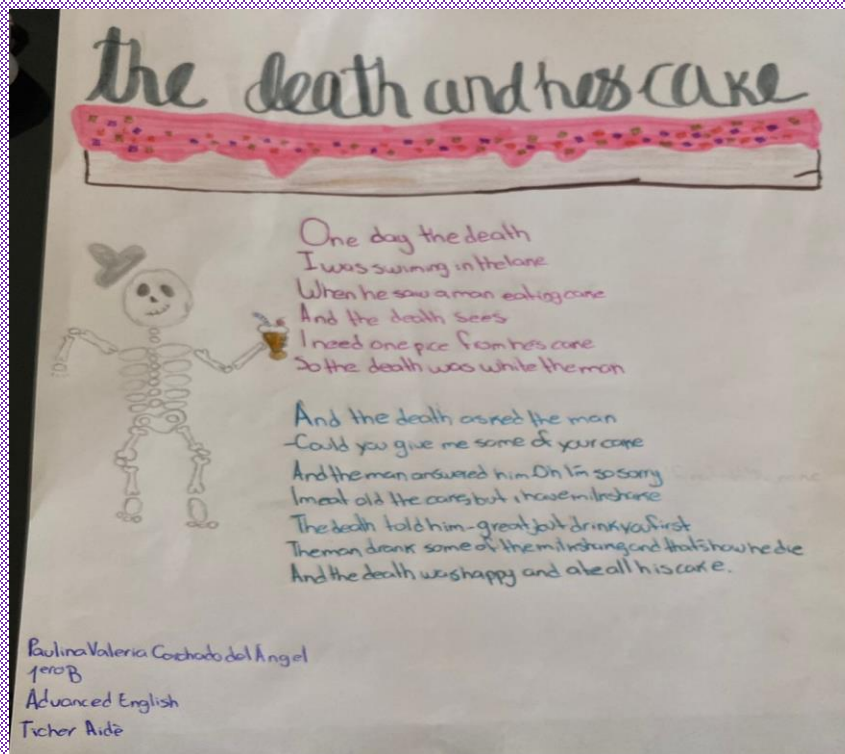 the death and hes cake
One day the death
I was swiming in the lane
When he saw a man eating cake
And the death sees
I need one pice from hes cake
So the death was white the man
And the death asked the man
-Could you give me some of your cake
And the man answered him Oh I'm so sorry
I meat old the cake, but i have milnshake
The death told him-great, but drink you first
The man drank some of the milnshang and that's how he die
And the death was happy and ate all his cake.
Paulina Valeria Corchado del Angel
1ero B
Advanced English
Ticher Aidè